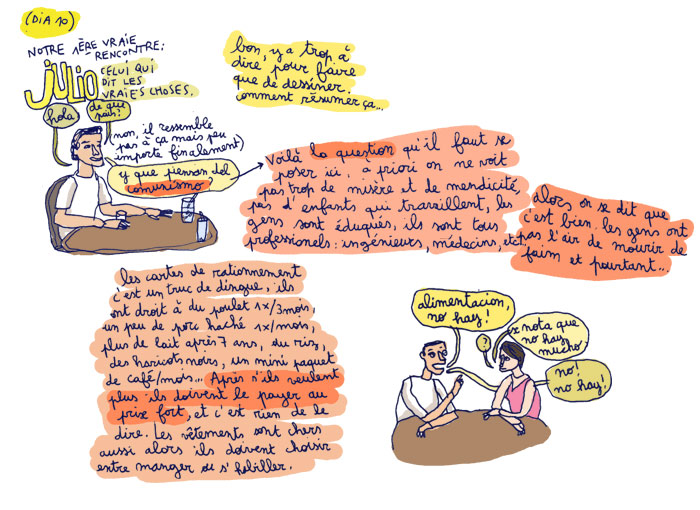 (DIA 10)
NOTRE 1ÈRE VRAIE
RENCONTRE:
JULIO
CELUI QUI
DIT LES
VRAIES CHOSES.
hola
de que
pais?
(non, il ressemble
pas à ça mais peu
importe finalement)
y que piensan del
comunismo?
bon, y a trop à
dire pour faire
que de dessiner.
comment résumer ça...
Voilà la question qu'il faut se
poser ici. a priori on ne voit
pas trop de misère et de mendicité,
pas d'enfants qui travaillent, les
gens sont éduqués, ils sont tous
professionels: ingénieurs, médecins, etc.
alors on se dit que
c'est bien. les gens ont
pas l'air de mourir de
faim et pourtant...
les cartes de rationnement
c'est un truc de dingue, ils
ont droit à du poulet 1x/3mois,
un peu de porc haché 1x/mois,
plus de lait après 7 ans, du riz,
des haricots noirs, un mini paquet
de café/mois... Après s'ils veulent
plus ils doivent le payer au
prix fort, et c'est rien de le
dire. Les vêtements sont chers
aussi alors ils doivent choisir
entre manger ou s'habiller.
alimentacion,
no hay!
?
se nota que
no hay
mucho
no!
no hay!